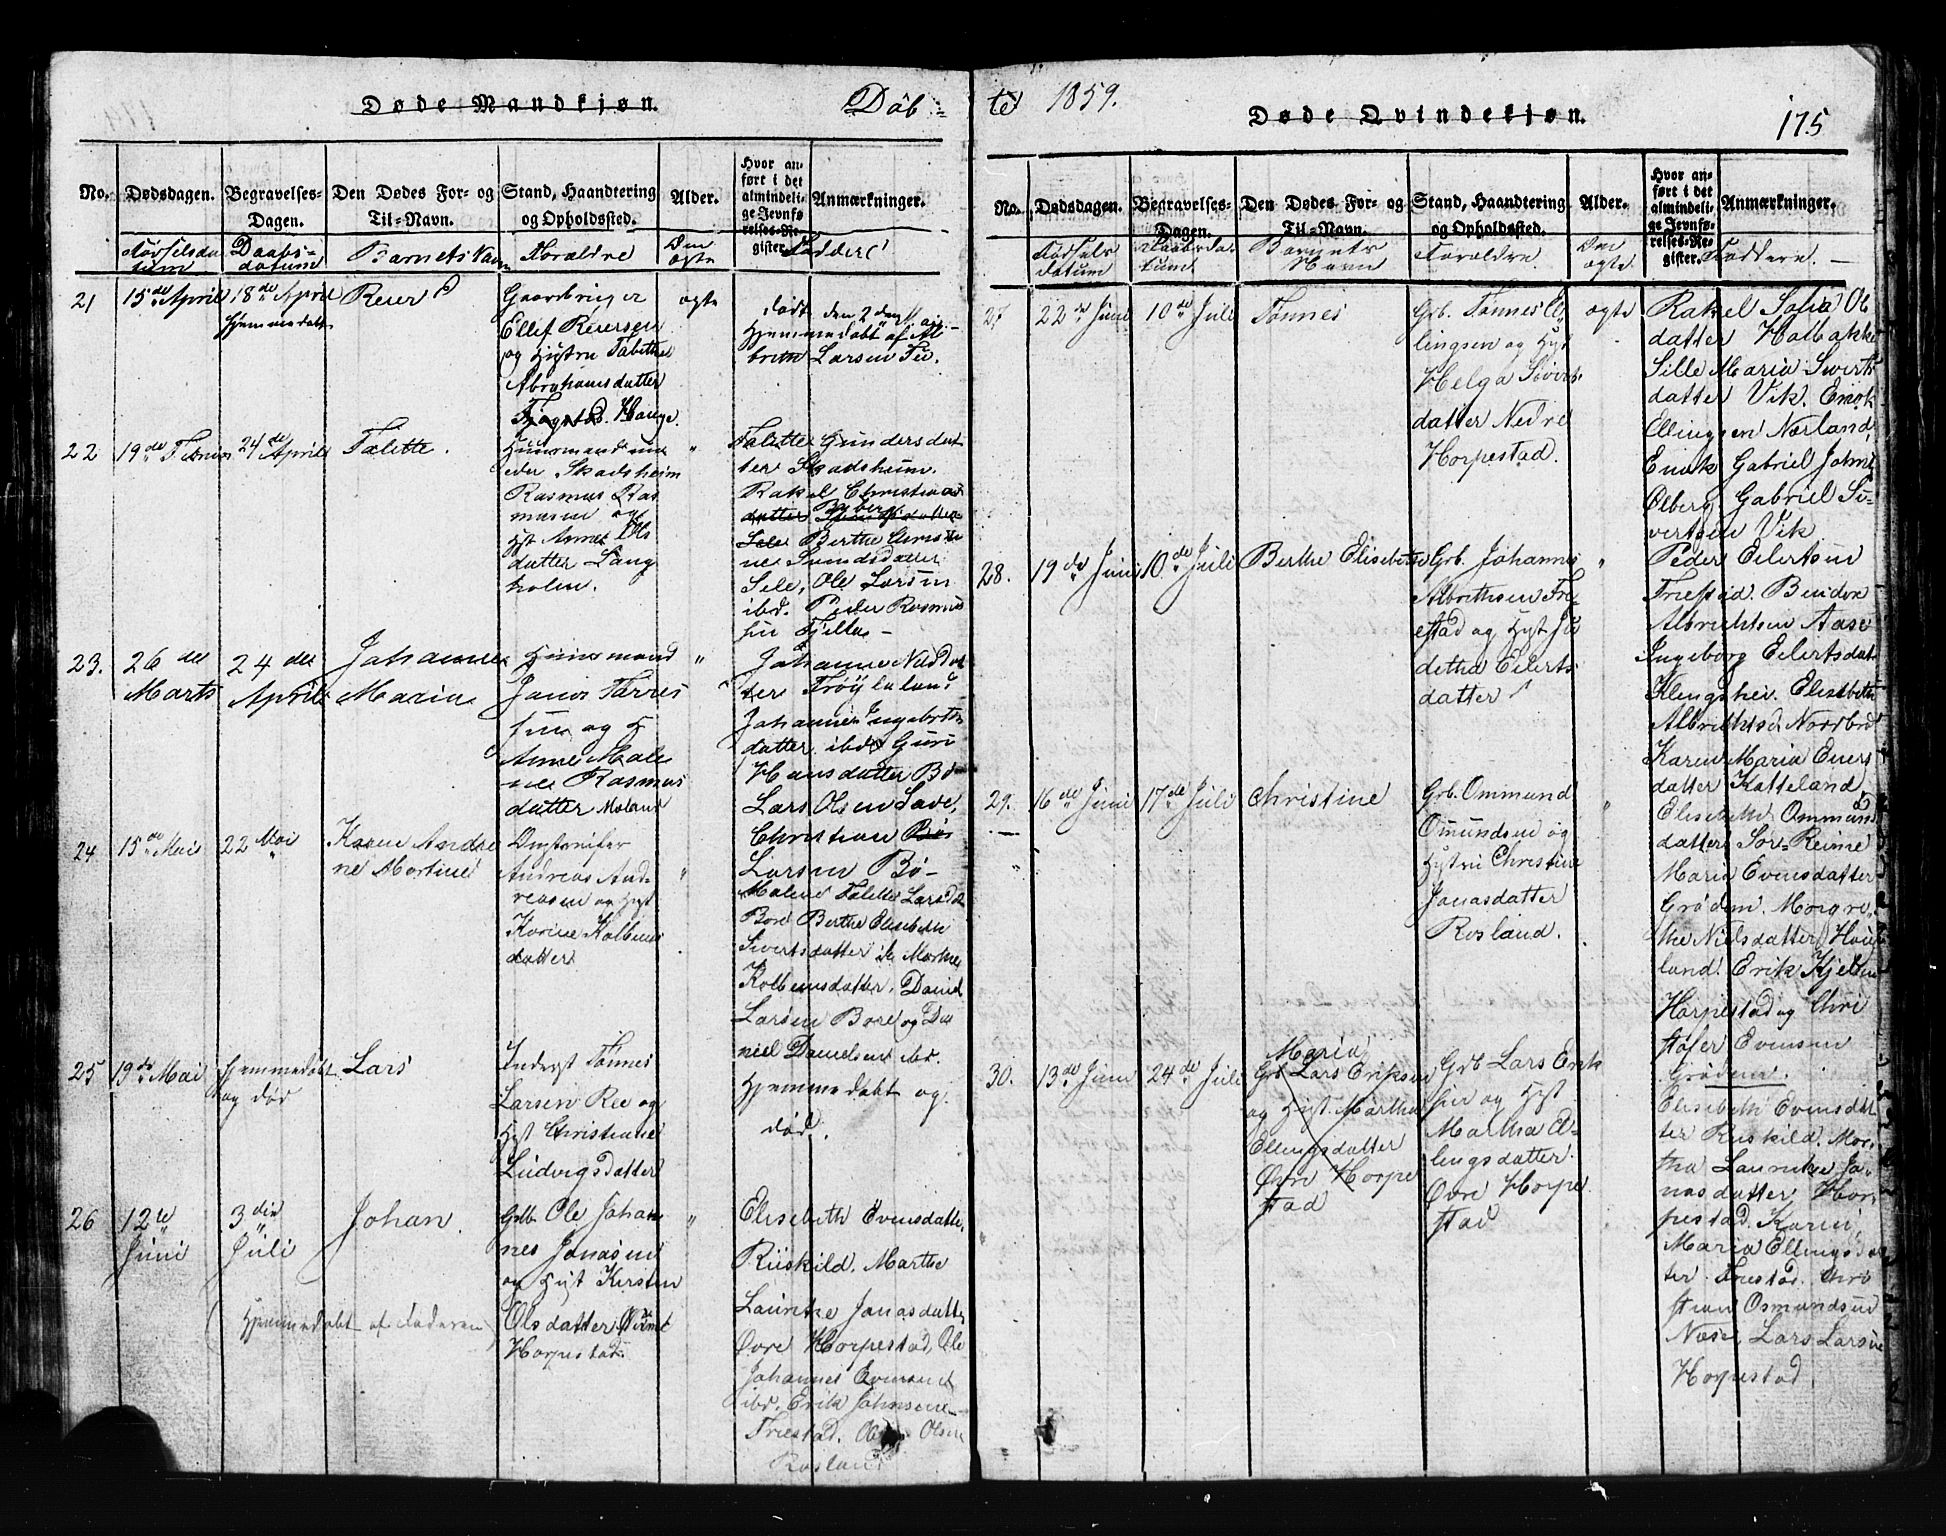 Døde Mandkjøn.
Døb
No.
Dødsdagen.
Begravelses-
Dagen.
Den Dødes For- og
Til-Navn.
Stand, Haandtering
og Opholdssted.
Alder.
Hvor an-
ført i det
almindeli-
ge Jevnfø
relses-Re-
gister.
Anmærkninger.
Fødselsda
tum
Daabs-
datum
Barnets Navn
Forældre
Om
ægte
Faddere
21
15de April
18de April
Hjemmedøbt
Reier
Gaardbruger
Ellef Reiersen
og Hustru Tabitha
Abrahamsdatter
Hauge.
ægte
født den 2den
Hjemmedøbt af Al
brethe Larsen
22
19de
24de April
Talette.
Huusmand un
der Skadsheim
Rasmus Ras
musen og
Hst Anne Ols
datter Lang
holen.
"
Talette Gundersdat
ter Skadsheim.
Rakel Christians
datter
Sele Berthe Chris
ne Svendsdatter
Sele, Ole Larsen
ibd. Peder Rasmus
sen Tjelta
23.
26de
Marts
24de
April
Johanne
Maria
Huusmand
Janos Torres
sen og H
Anne Male
ne Rasmus
datter
"
Johanne
ter Frøyland
Johanne Ingebrets
datter ibd Guri
Hansdatter Bø
Lars Olsen
Christian Bø
Larsen Bø
24
15de Mai
22 Mai
Karen Andre
ne Martine
Andreas And
reasen og Hust
Karine Kolbens
datter
"
Malene Talette Larsd
Bore Berthe Elisbeth
Sivertsdatter Marthe
Kolbensdatter. Daniel
Larsen Bore og Da
niel Danielsen ibd.
25
19de Mai
Hjemmedøbt
og død
Lars
Inderst Tønnes
Larsen Ree og
Hst Christiane
Ludvigsdatter
Hjemmedøbt og
død.
26
12te
Juni
3die
Juli
Johan.
Ole Johan
nes Jonasen
og Hust Kirsten
Olsdatter
Horpestad.
(Hjemmedøbt af Faderen)
"
Elisebeth Evensdatte
Riiskild. Marthe
Laurike Jonasdatte
Øvre Horpestad, Ole
Johannes Evensen
ibd. Erik Johnsen
Friestad. Ole Olsen
Rosland
te
1859.
Døde Qvindekjøn.
175
No.
Dødsdagen.
Begravelses-
Dagen.
Den Dødes For- og
Til-Navn.
Stand, Haandtering
og Opholdssted.
Alder.
Hvor an-
ført i det
almindeli-
ge Jevnfø-
relses-Re-
gister.
Anmærkninger.
Fødsels
datum
Daabsda
tum
Barnets
Navn
Forældre
Om
ægte
Faddere.
27
22de Juni
10de Juli
Tønnes
Grb. Tønnes El
lingsen og Hst
Helga Sivert
datter Nedre
Horpestad.
ægte
Rakel Sofia Ol
datter Holbakke
Sille Maria Siverts
datter Vik. Enok
Ellingsen Nærland,
Enok Gabriel Johns
Ølberg Gabriel Si-
vertsen Vik
28.
19de Juni
10de Juli
Berthe Elisebeth
Grb. Johannes
Albrethsen Fri-
estad og Hst Ju
detha Eilerts
datter
"
Peder Eilertsen
Friestad. Bendix
Albrichtsen Aase
Ingeborg Eilertsdat
Klingshei. Elisebeth
Albrethsd Nordbrød
Karen Maria Eilers
datter Katteland
29.
16de Juni
17de Juli
Christine
Grb. Ommund
Omundsen og
Hstru Christine
Jonasdatter
Rosland.
"
Elisebeth Ommunds
datter Sør-Reime
Maria Evensdatter
Grødem. Margre
the Nielsdatter Hau
land. Erik Kjelsen
Horpestad og Chri
støfer Evensen
Grødem.
30.
13de Juni
24de Juli
Maria
Grb Lars Eriksen
og Hust. Martha
Ellingsdatter
Øvre Horpe
stad
Grb Lars Erik
sen og Hst
Martha El-
lingsdatter
Øvre Horpe
stad
Elisebeth Evensdat
ter Riskild. Mar-
tha Laurike Jo-
nasdatter, Hor
pestad. Karen
Maria Ellingsda
ter Friestad. Chri
stian Osmundsen
Næse, Lars Larsen
Horpestad.